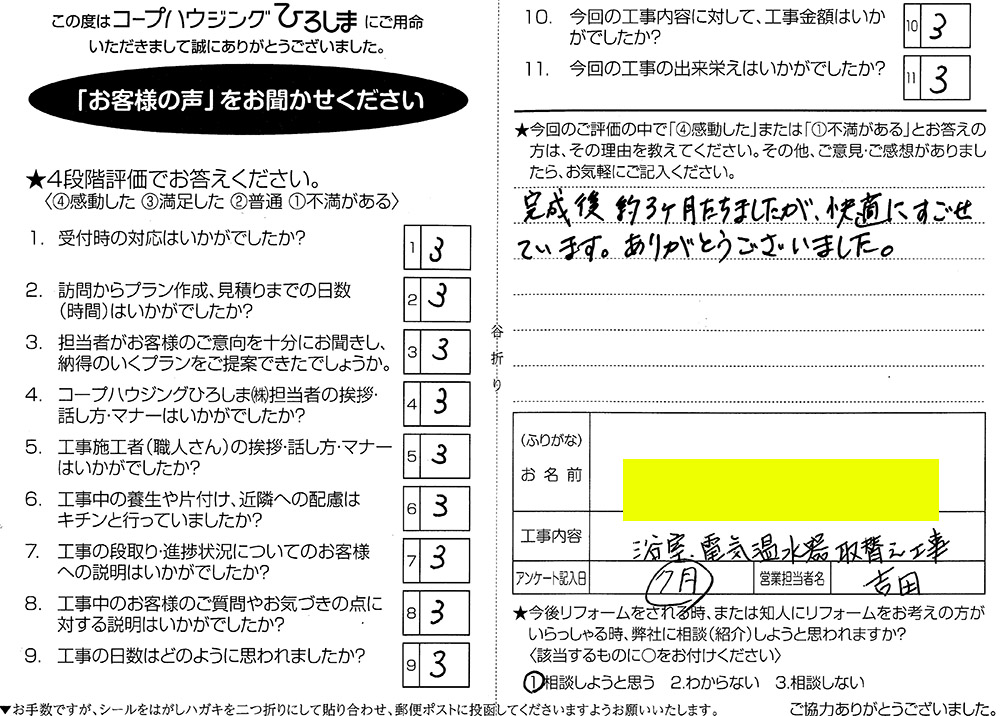 この度はコープハウジングひろしまにご用命
いただきまして誠にありがとうございました。
「お客様の声」をお聞かせください
★4段階評価でお答えください。
〈④感動した ③満足した ②普通 ①不満がある〉
1. 受付時の対応はいかがでしたか?
1 3
2. 訪問からプラン作成、見積りまでの日数
(時間)はいかがでしたか?
2 3
3. 担当者がお客様のご意向を十分にお聞きし、
納得のいくプランをご提案できたでしょうか。
3 3
4. コープハウジングひろしま㈱担当者の挨拶・
話し方・マナーはいかがでしたか?
4 3
5. 工事施工者(職人さん)の挨拶・話し方・マナー
はいかがでしたか?
5 3
6. 工事中の養生や片付け、近隣への配慮は
キチンと行っていましたか?
6 3
7. 工事の段取り・進捗状況についてのお客様
への説明はいかがでしたか?
7 3
8. 工事中のお客様のご質問やお気づきの点に
対する説明はいかがでしたか?
8 3
9. 工事の日数はどのように思われましたか?
9 3
▼お手数ですが、シールをはがしハガキを二つ折りにして貼り合わせ、郵便ポストに投函してくださいますようお願いいたします。
谷折り
10. 今回の工事内容に対して、工事金額はいか
がでしたか?
10 3
11. 今回の工事の出来栄えはいかがでしたか?
11 3
★今回のご評価の中で「④感動した」または「①不満がある」とお答えの
方は、その理由を教えてください。その他、ご意見・ご感想がありまし
たら、お気軽にご記入ください。
完成後 約3ヶ月たちましたが、快適にすごせ
ています。ありがとうございました。
(ふりがな)
お名前
工事内容
浴室、電気温水器取替え工事
アンケート記入日
7月
営業担当者名
吉田
★今後リフォームをされる時、または知人にリフォームをお考えの方が
いらっしゃる時、弊社に相談(紹介)しようと思われますか?
〈該当するものに○をお付けください〉
1.相談しようと思う 2.わからない 3.相談しない
ご協力ありがとうございました。